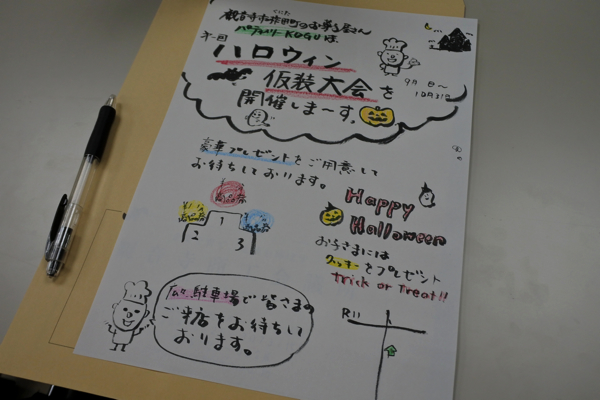 観音寺市柞田町のお菓子屋さん
くにた
パティスリーKOGUは、
第一回
ハロウィン
仮装大会を
開催しま〜す。
9月 日〜
10月31日
豪華プレゼントをご用意して
お待ちしております。
1
2
3
Happy
Halloween
お子さまには
クッキーをプレゼント
trick or treat!!
広い駐車場で皆さまの
ご来店をお待ちして
おります。
R11